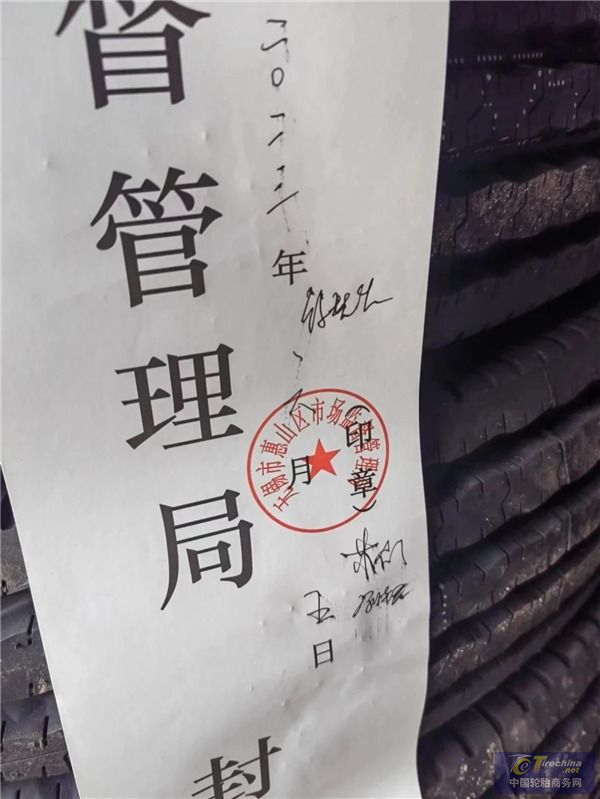 督管理局
封
二〇二三年
月
五日
(印章)
无锡市惠山区市场监督管理局
Tirechina
.net
中国轮胎商务网